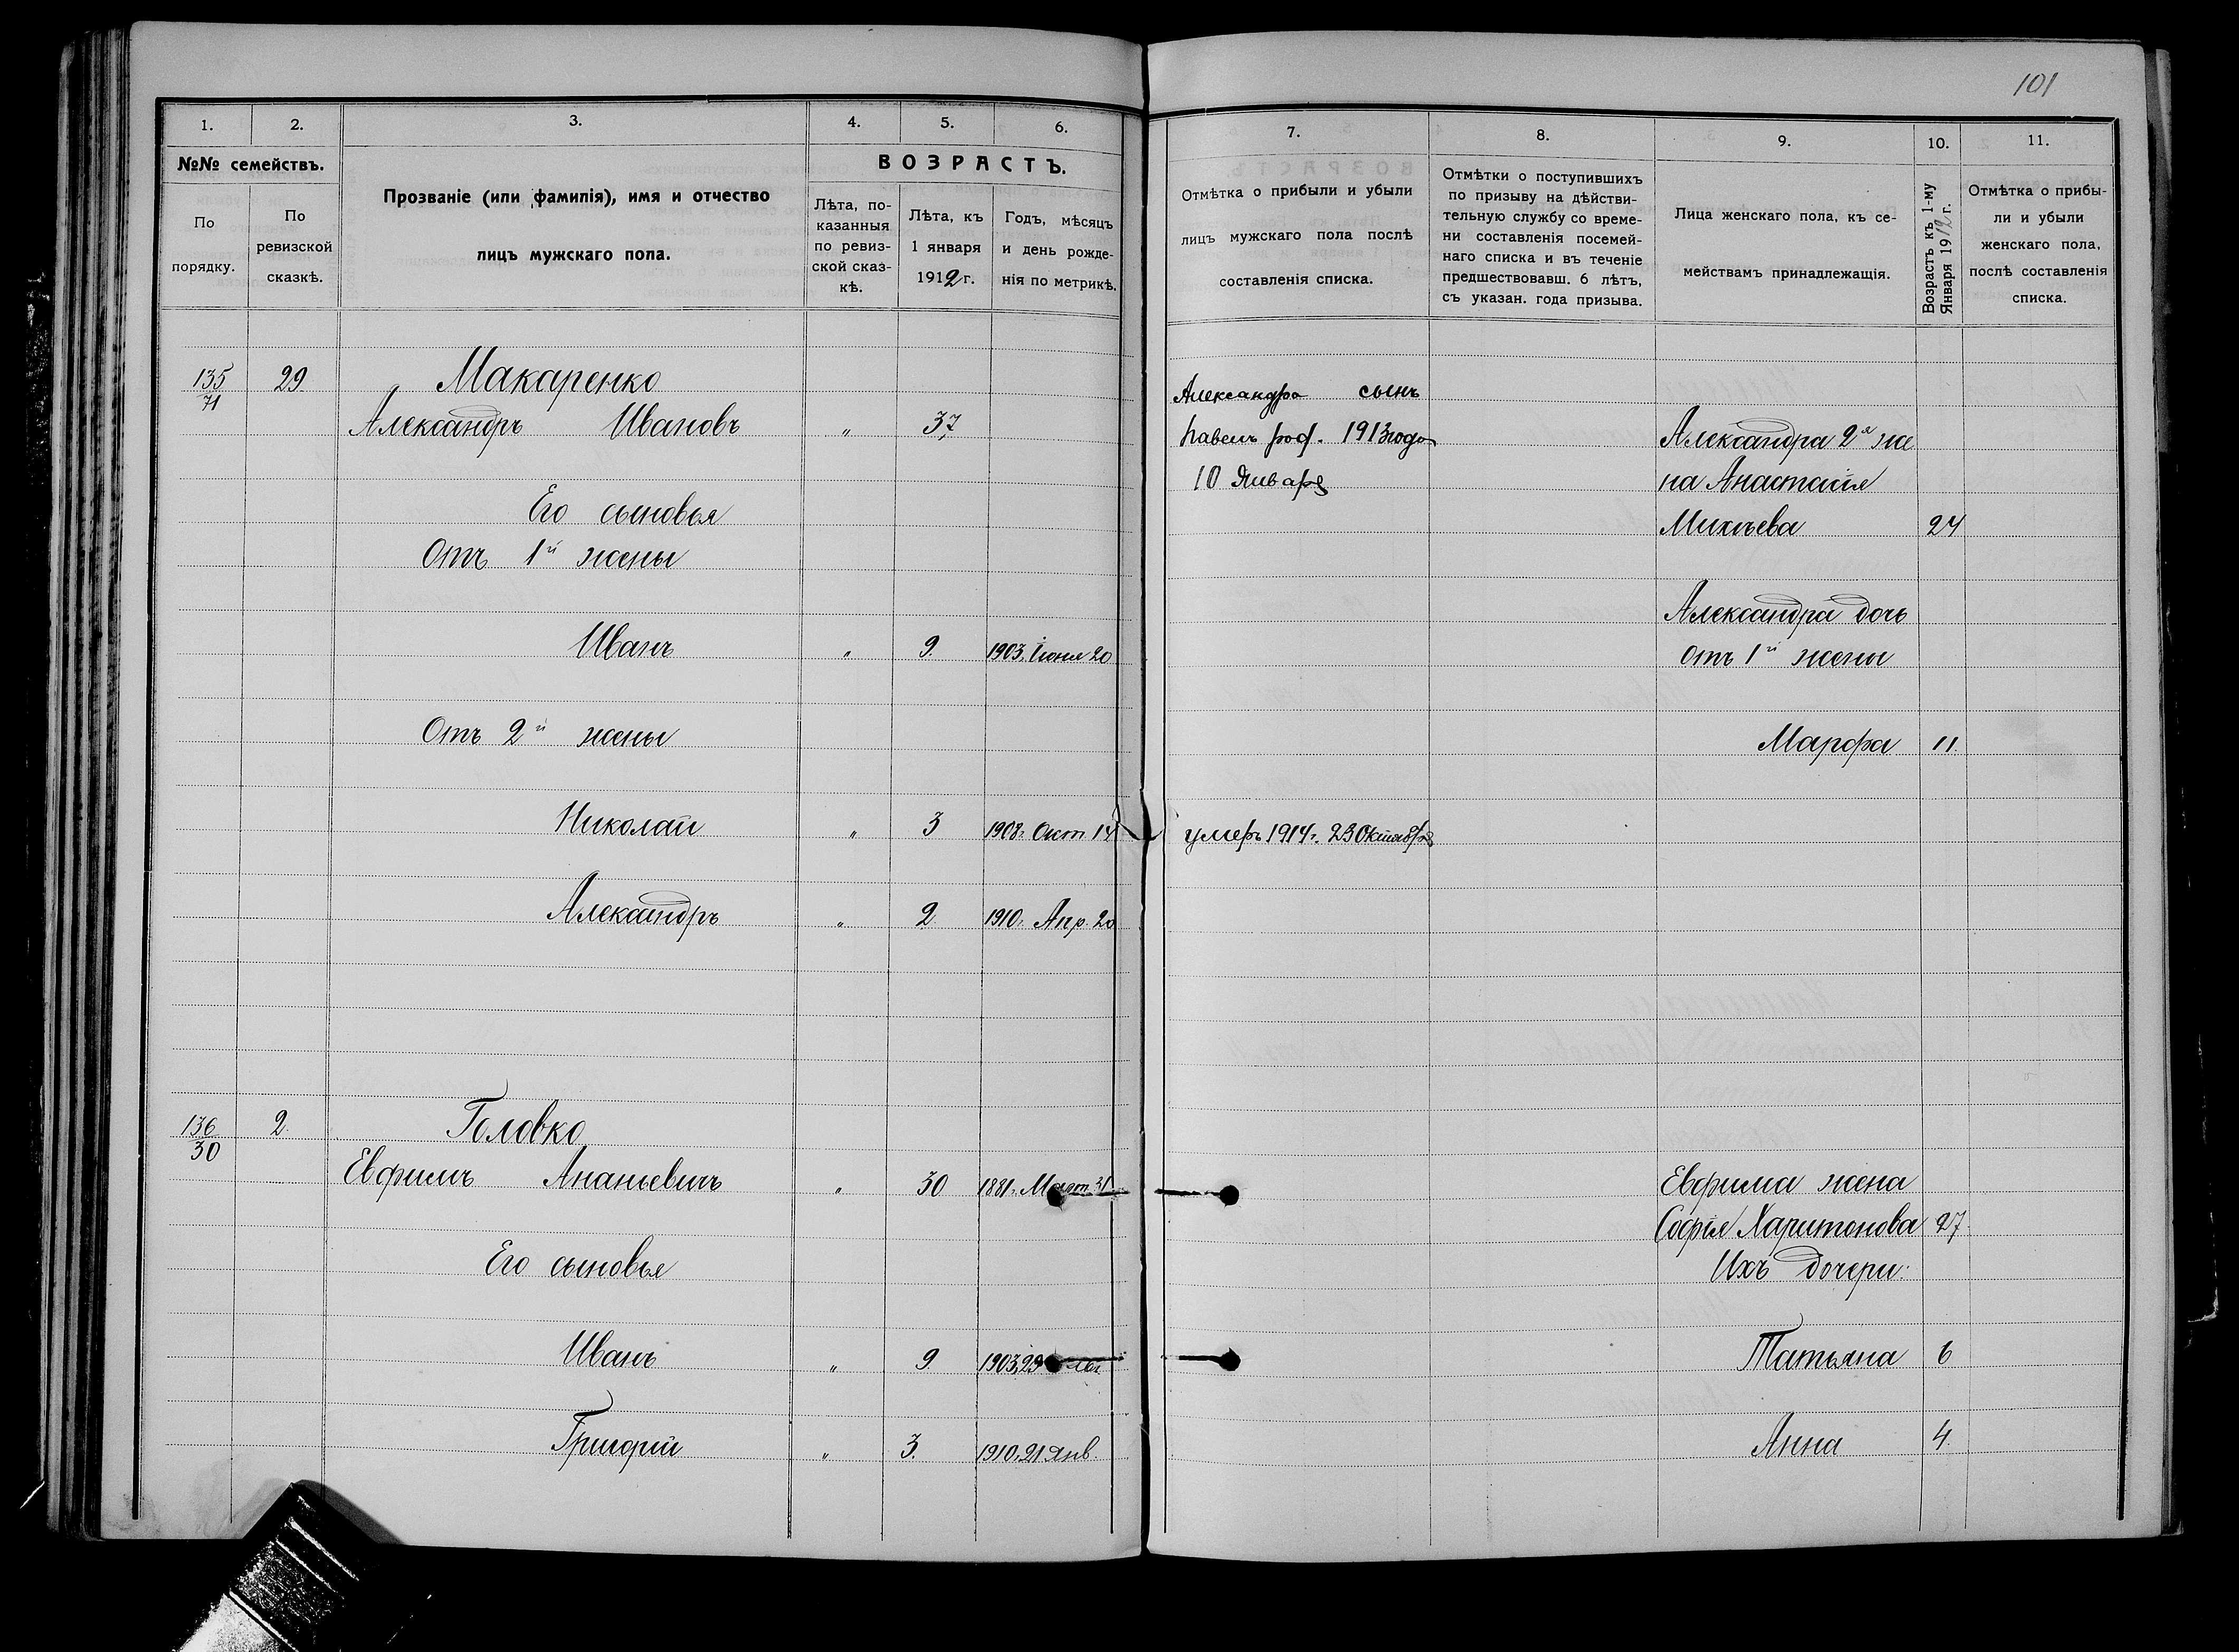 101
1.
2.
3.
4.
5.
6.
№№ семействъ.
По
порядку.
По
ревизской
сказкѣ.
Прозваніе (или фамилія), имя и отчество
лицъ мужскаго пола.
ВОЗРАСТЪ.
Лѣта, по-
казанныя
по ревиз-
ской сказ-
кѣ.
Лѣта, къ
1 января
1912 г.
Годъ, мѣсяцъ
и день рожде-
нія по метрикѣ.
7.
8.
9.
10.
11.
Отмѣтка о прибыли и убыли
лицъ мужскаго пола послѣ
составленія списка.
Отмѣтки о поступившихъ
по призыву на дѣйстви-
тельную службу со време-
ни составленія посемей-
наго списка и въ теченіе
предшествовавш. 6 лѣтъ,
съ указан. года призыва.
Лица женскаго пола, къ се-
мействамъ принадлежащія.
Возрастъ къ 1-му
Января 1912 г.
Отмѣтка о прибы-
ли и убыли
женскаго пола,
послѣ составленія
списка.
135 29 Макаренко
71
Александръ Ивановъ " 37
Его сыновья
Отъ 1й жены
Иванъ " 9. 1903. Іюня 20
Отъ 2й жены
Николай " 3 1908. Окт 14
Александръ " 2. 1910. Апр. 20
136 2. Головко
30
Евфимъ Ананьевичъ " 30 1881. Март 31
Его сыновья
Иванъ " 9. 1903, 29
Григорій " 3. 1910. 21 Янв.
Александра сынъ
Павелъ род. 1913 года
10 Января
умеръ 1914 г. 23 Октября
Александра 2я же
на Анастасія
Михѣева 24
Александра дочь
отъ 1й жены
Марфа 11.
Евфима жена
Софія Харитонова 27.
Ихъ дочери:
Татьяна 6
Анна 4.